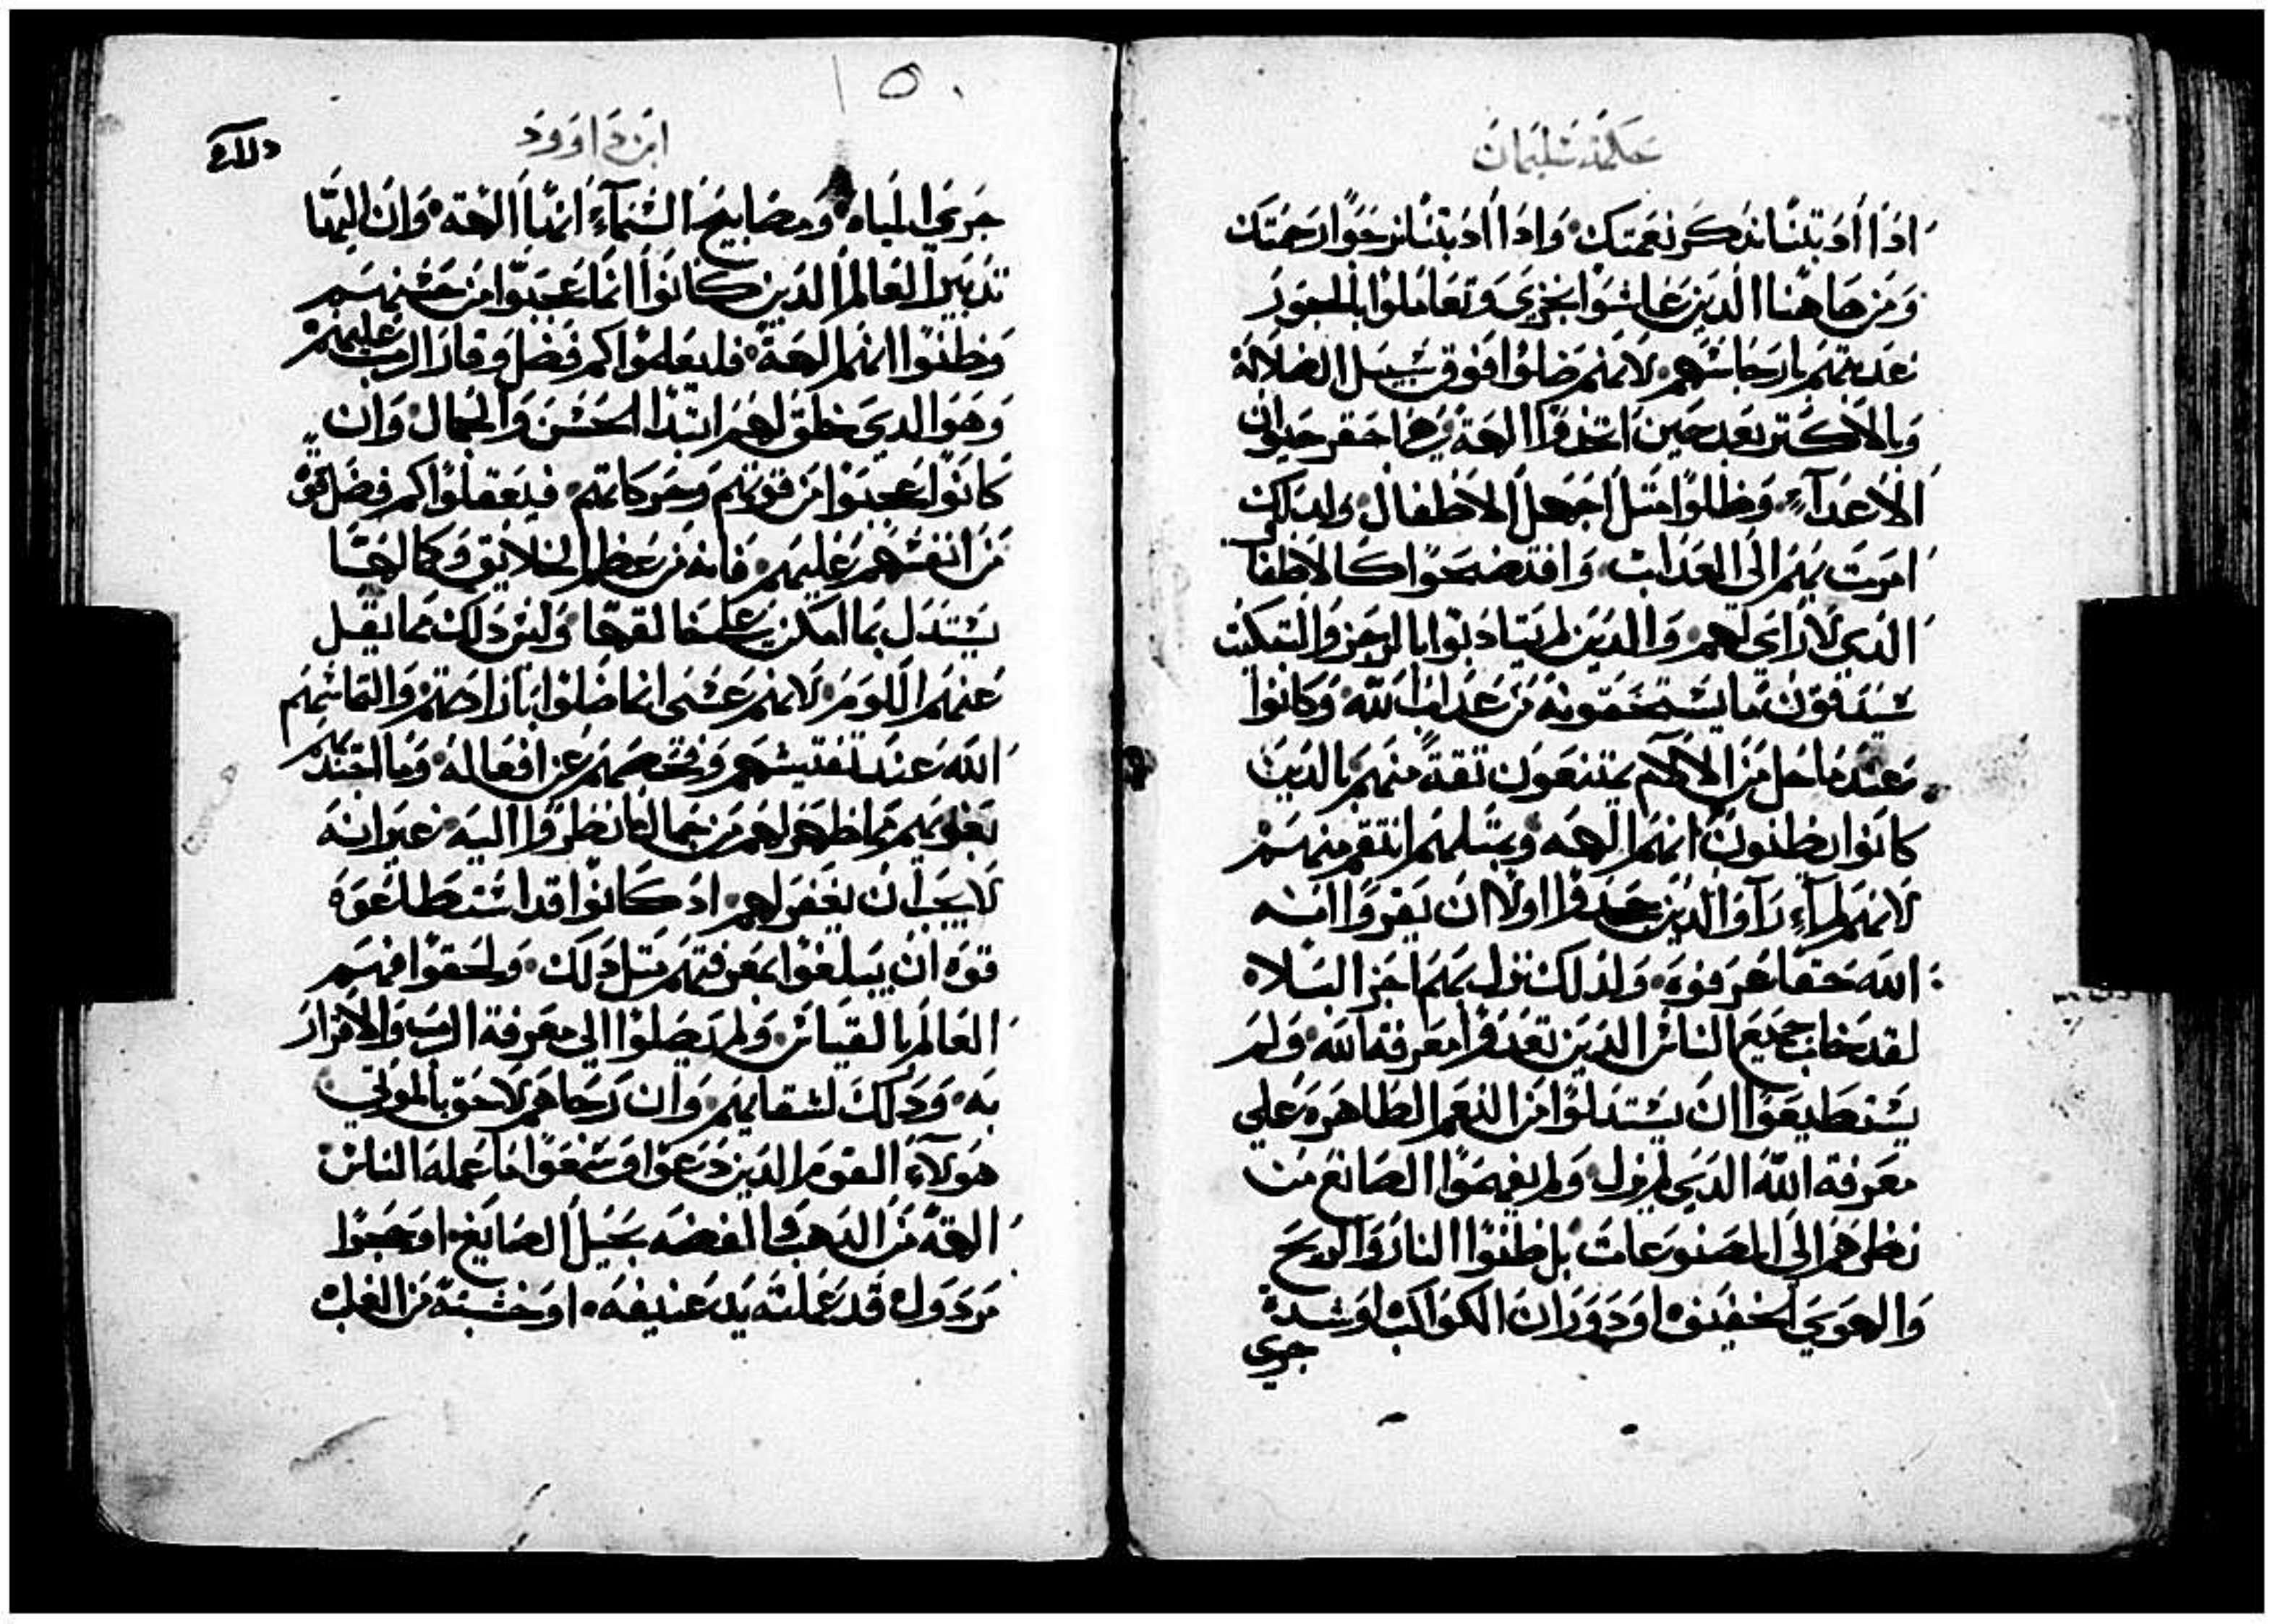 حكمة سليمان
اذا ادبتنا نذكر نعمتك وَاذا ادبتنا نرجوا رحمتك
وَمن هاهنا الدين عاشوا بخزي وتعاملوا بالجور
عدبتهم بارجاسهم لانهم ضلوا فوق سبيل الضلالة
وبالاكتر بعد حين اتخدوا الهة حيوان
الاعدآء وَظلوا متل اجهل الاطفال ولدلك
امرت بهم الى العداب وَافتضحوا كالاطفا
الدي لا راي لهم وَالدين لم يتادبوا بالرجز وَالتبكيت
سيدقون ما يستحقونه من عداب الله وَكانوا
عندما حل من الالام يمتنعون تقة منهم بالدين
كانوا يظنون انهم الهه وبمتلهم انتقم منهم
لانهم لمآء رآوا الدين جحدوا اولا ان يقروا انه
الله حقا عرفوه ولدلك نزل بهم اجز البلاه
لقد خاب جميع الناس الدين تعدوا معرفة الله ولم
يستطيعوا ان يستدلوا من النعم الظاهره علي
معرفة الله الدي لم يزل ولم يفهموا الصانع من
نظرهم الى المصنوعات بل ظنوا النار وَالريح
وَالهوي الخفيف اودوران الكواكب اوشدة
جري
ابن داوود
جري المياه ومصابيح السمآء انها الهة وَان اليها
تدبير العالم الدين كانوا انما عجبوا من حسنهم
وظنوا انهم الهة فليعلموا كم فضل وقار الرب عليهم
وَهو الدي خلق لهم ابتدا الحسن وَالجمال وَان
كانوا عجبوا من قوتهم وحركاتهم فيعقلوا كم فضل قوة
من انفسهم عليهم فانه من عظم الخلايق وكمالها
يستدل بما امكن على خالقها وَليس دلك مما يقل
عنهم اللوم لانهم عسى انما ضلوا بارادتهم والتماسهم
الله عند تفتيشهم وفحصهم عن افعاله وما اجتدبهم
بقلوبهم مما ظهر لهم من جمال ما نظروا اليه غير انه
لا يجب ان يغفر لهم اد كانوا قد استطاعوه
قوه ان يبلغوا بمعرفتهم متل دلك ولحقوا فهم
العالم بالقياس ولم يصلوا الي معرفة الرب وَالاقرار
به وَدلك لشقايهم وَان رجاهم لاحق بالموتي
هولآء القوم الدين دعوا وسمعوا ما عمله الناس
الهة من الدهب والفضه بحيل الصايغ اوحجرا
مردول قد عملته يد عنيفه اوخشبة من الغاب